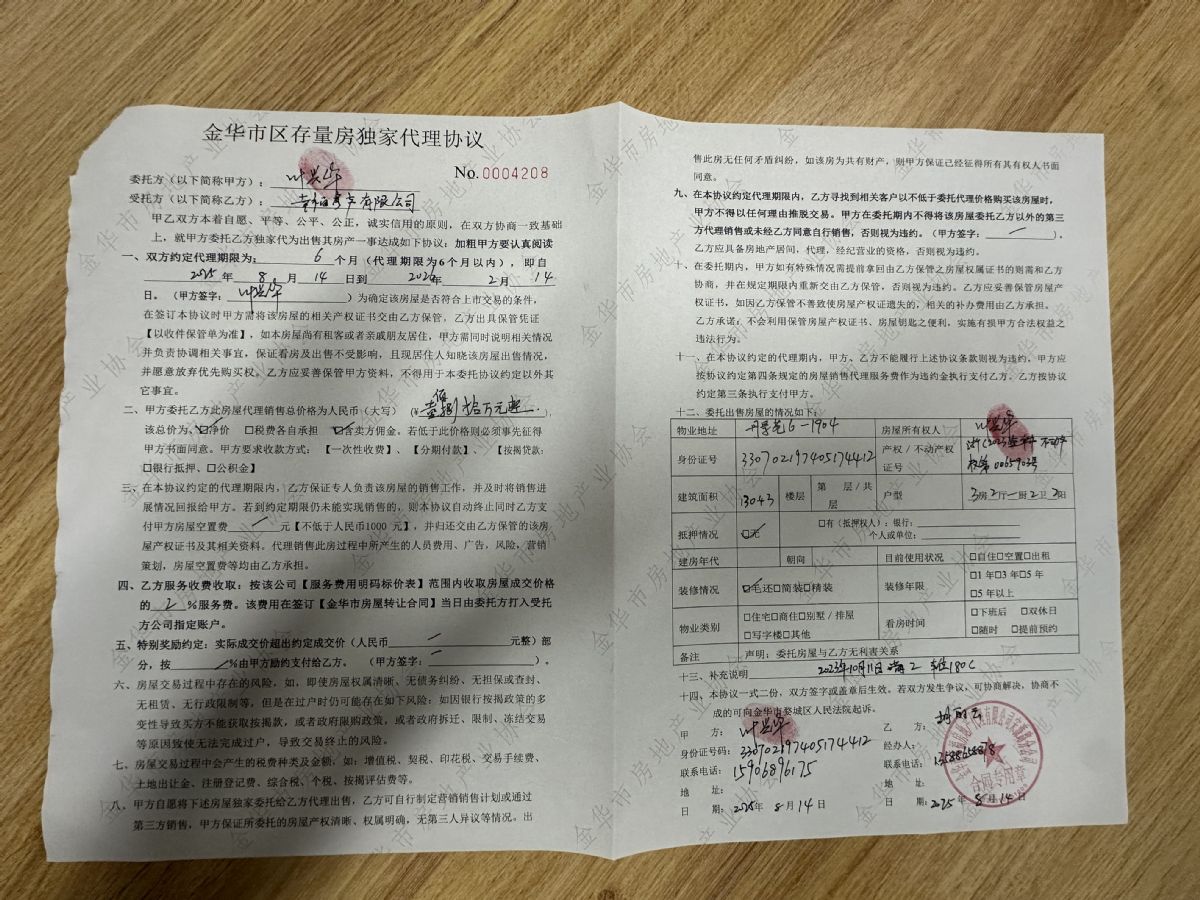 金华市区存量房独家代理协议
No.0004208
委托方（以下简称甲方）：叶兴华
受托方（以下简称乙方）：有限公司
甲乙双方本着自愿、平等、公平、公正，诚实信用的原则，在双方协商一致基础
上，就甲方委托乙方独家代为出售其房产一事达成如下协议：加粗甲方要认真阅读
一、双方约定代理期限为：6个月（代理期限为6个月以内），即自
2025年8月14日到2026年2月14
日。（甲方签字：叶兴华）为确定该房屋是否符合上市交易的条件，
在签订本协议时甲方需将该房屋的相关产权证书交由乙方保管，乙方出具保管凭证
【以收件保管单为准】，如本房屋尚有租客或者亲戚朋友居住，甲方需同时说明相关情况
并负责协调相关事宜，保证看房及出售不受影响，且现居住人知晓该房屋出售情况，
并愿意放弃优先购买权。乙方应妥善保管甲方资料，不得用于本委托协议约定以外其
它事宜。
二、甲方委托乙方此房屋代理销售总价格为人民币（大写）（¥壹佰捌拾万元整），
该总价为、☑净价 ☐税费各自承担 ☑含卖方佣金。若低于此价格则必须事先征得
甲方书面同意。甲方要求收款方式：【一次性收费】、【分期付款】、【按揭贷款：
☐银行抵押、☐公积金】
三、在本协议约定的代理期限内，乙方保证专人负责该房屋的销售工作，并及时将销售进
展情况回报给甲方。若到约定期限仍未能实现销售的，则本协议自动终止同时乙方支
付甲方房屋空置费 / 元【不低于人民币1000 元】，并归还交由乙方保管的该房
屋产权证书及其相关资料。代理销售此房过程中所产生的人员费用、广告，风险，营销
策划，房屋空置费等均由乙方承担。
四、乙方服务收费收取：按该公司【服务费用明码标价表】范围内收取房屋成交价格
的2%服务费。该费用在签订【金华市房屋转让合同】当日由委托方打入受托
方公司指定账户。
五、特别奖励约定：实际成交价超出约定成交价（人民币 / 元整）部
分，按 / %由甲方励约支付给乙方。（甲方签字： / ）。
六、房屋交易过程中存在的风险，如，即使房屋权属清晰、无债务纠纷、无担保或查封、
无租赁、无行政限制等，但是在过户时仍可能存在如下风险：如因银行按揭政策的多
变性导致买方不能获取按揭款，或者政府限购政策，或者政府拆迁、限制、冻结交易
等原因致使无法完成过户，导致交易终止的风险。
七、房屋交易过程中会产生的税费种类及金额：如：增值税、契税、印花税、交易手续费、
土地出让金、注册登记费、综合税、个税、按揭评估费等。
八、甲方自愿将下述房屋独家委托给乙方代理出售，乙方可自行制定营销销售计划或通过
第三方销售，甲方保证所委托的房屋产权清晰、权属明确，无第三人异议等情况。出
售此房无任何矛盾纠纷，如该房为共有财产，则甲方保证已经征得所有其有权人书面
同意。
九、在本协议约定代理期限内，乙方寻找到相关客户以不低于委托代理价格购买该房屋时，
甲方不得以任何理由推脱交易。甲方在委托期内不得将该房屋委托乙方以外的第三
方代理销售或未经乙方同意自行销售，否则视为违约。（甲方签字： / ）。
乙方应具备房地产居间，代理，经纪营业的资格，否则视为违约。
十、在委托期内，甲方如有特殊情况需提前拿回由乙方保管之房屋权属证书的则需和乙方
协商，并在规定期限内重新交由乙方保管，否则视为违约。乙方应妥善保管房屋产
权证书，如因乙方保管不善致使房屋产权证遗失的，相关的补办费用由乙方承担。
乙方承诺：不会利用保管房屋产权证书、房屋钥匙之便利，实施有损甲方合法权益之
违法行为。
十一、在本协议约定的代理期内，甲方、乙方不能履行上述协议条款则视为违约，甲方应
按协议约定第四条规定的房屋销售代理服务费作为违约金执行支付乙方。乙方按协议
约定第三条执行支付甲方。
十二、委托出售房屋的情况如下：
物业地址 丹景苑6-1904 房屋所有人 叶兴华
身份证号 330702197405174412 产权／不动产权证号 浙(2023)金华市不动产权第0065903号
建筑面积 130.43 楼层 第 层／共 层 户型 3房2厅一厨2卫2阳
抵押情况 ☑无 ☐有（抵押权人）：银行：
个人或单位：
建房年代 朝向 目前使用状况 ☐自住☐空置☐出租
装修情况 ☑毛还☐简装☐精装 装修年限 ☐1年☐3年☐5年
☐5年以上
物业类别 ☐住宅☐商住☐别墅／排屋
☐写字楼☐其他
看房时间 ☐下班后 ☐双休日
☐随时 ☐提前预约
备注 声明：委托房屋与乙方无利害关系
十三、补充说明 2023年10月11日 满2 180
十四、本协议一式二份，双方签字或盖章后生效。若双方发生争议，可协商解决，协商不
成的可向金华市婺城区人民法院起诉。
甲 方：叶兴华
身份证号码：330702197405174412
联系电话：15906896175
地 址：
日 期：2025年8月14日
乙 方：
经办人：
联系电话：13588658878
地 址：
日 期：2025年8月14日
合同专用章
金华市房地产业协会